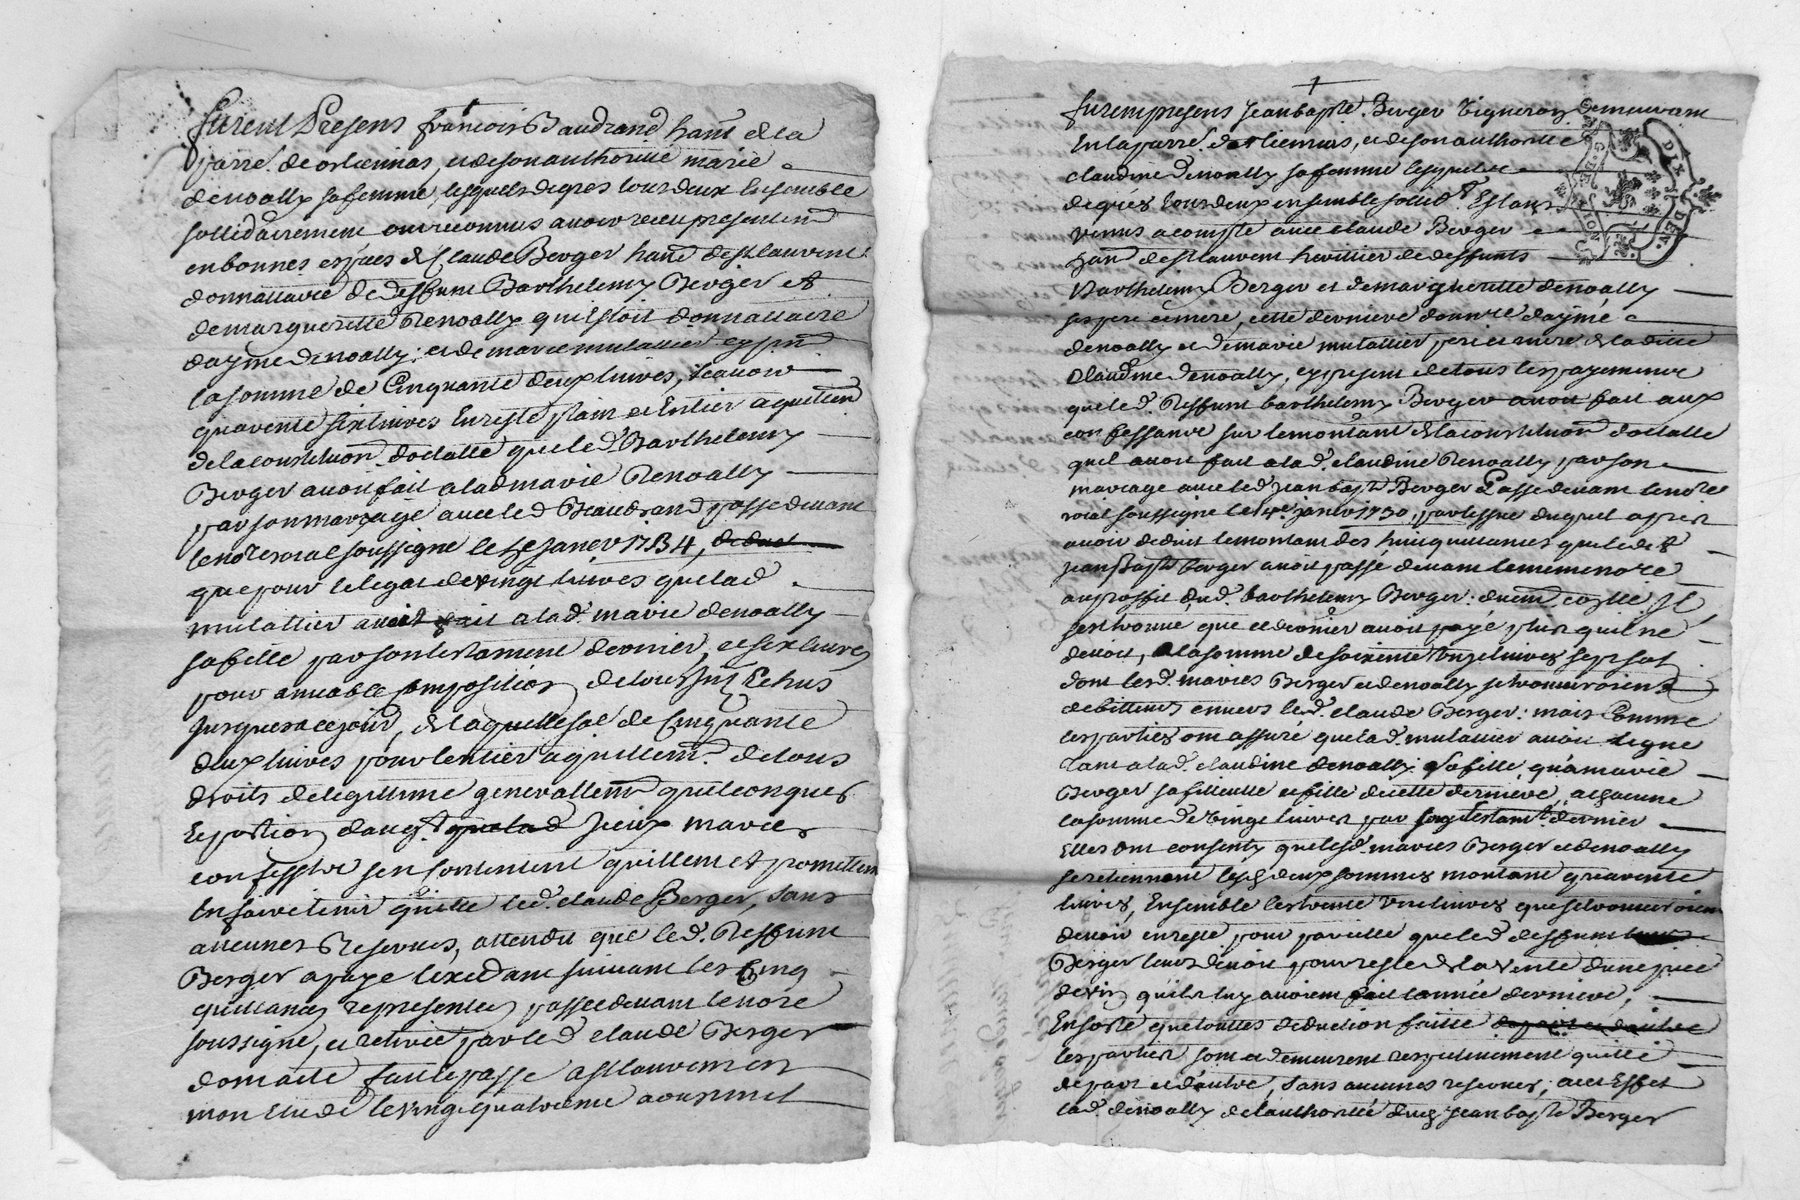 furent Presens françois Baudrand hant de la
parre de orliennas, et de son authorité marie
denoally sa femme, lesquels de gres tous deux Ensemble
sollidairement ont reconnus avoir receu presentemt
en bonnes espaces de Claude Berger hant de st laurent
donnattaire de deffunt Barthelemy Berger et
de margueritte Denoally qui Etoit donnattaire
dayme denoally, et de marie mutattier
la somme de Cinquante deux livres, scavoir
quarente six livres En reste plain et Entier aquittemt
de la constitution dotalle que le d. Barthelemy
Berger avoit fait a la d marie Denoally
par son mariage avec le d Beaudrand passé devant
le notre roial soussigné le janvr 1734,
que pour le legat de vingt livres que la d.
mutattier avoit fait a la d. marie denoally
sa fille par son testament dernier, et six livres
pour amiable composition de tous Echus
jusques a ce jour, de laquelle so͞e de Cinquante
deux livres pour l'entier aquittemt. de tous
droits de legittime generallemt quelconques
Et portion d'augt que la d jeux maries
confessse sen contentent quittent et promettent
En faire tenir quitte le d. claude Berger, sans
aucunes Reserves, attendu que le d. Deffunt
Berger a payé lexedant suivant les Cinq
quittances representes passé devant le notre
soussigné, et retirée par le d claude Berger
dont acte fait et passé a st laurent en
mon Etude le vingt quatrieme aoust mil
furent presens jean bapte. Berger Vigneron demeurant
En la parre. d'orliennas, et de son authorité
claudine denoally sa femme lesquels
de gres tous deux ensemble sollidt. Estant
venus a compte avec claude Berger
hant de st laurent heritier de deffunts
Barthelemy Berger et de margueritte denoally
ses pere et mere, cette derniere donnre d'aymé
denoally et de marie mutattier pere et mere de la ditte
Claudine denoally, et present de tous les payements
que le d. deffunt barthelemy Berger avoit fait aux
confessants sur le montant de la constitution dotalle
quil avoit fait a la d. claudine Denoally par son
mariage avec le d jean bapte Berger Passé devant le notre
roial soussigné le janvr 1730, par lissue duquel apres
avoir deduit le montant des huit quittances que le dt
jean bapte berger avoit passé devant le meme notre
au proffit dud. barthelemy Berger. Il
sest trouvé que ce dernier avoit payé plus quil ne
devoit, de la somme de soixente Onze livres sept sol
dont les d. maries Berger et denoally se trouveroient
debitteurs envers le d. claude Berger: mais Comme
les parties ont assuré que la d. mutattier avoit legué
tant a la d. claudine denoally sa fille, qu'a marie
Berger sa filleulle et fille de cette derniere, a chacune
la somme de Vingt livres par son testamt. dernier
Elles ont consenty que les d. maries Berger et denoally
se retiennent les d deux sommes montant quarente
livres, Ensemble les trente une livres que se trouveroient
devoir en reste pour pareille que le d deffunt
Berger leur devoit pour reste de la vente d'une piece
de vin quils luy avoient fait l'année derniere,
En sorte que touttes deduction faitte
les parties sont et demeurent respectivement quitté
de part et d'autre, sans aucunes reserves, a cet Effet
la d. denoally de l'authorité dud jean bapte Berger
DIX DEN.
G. DE LION